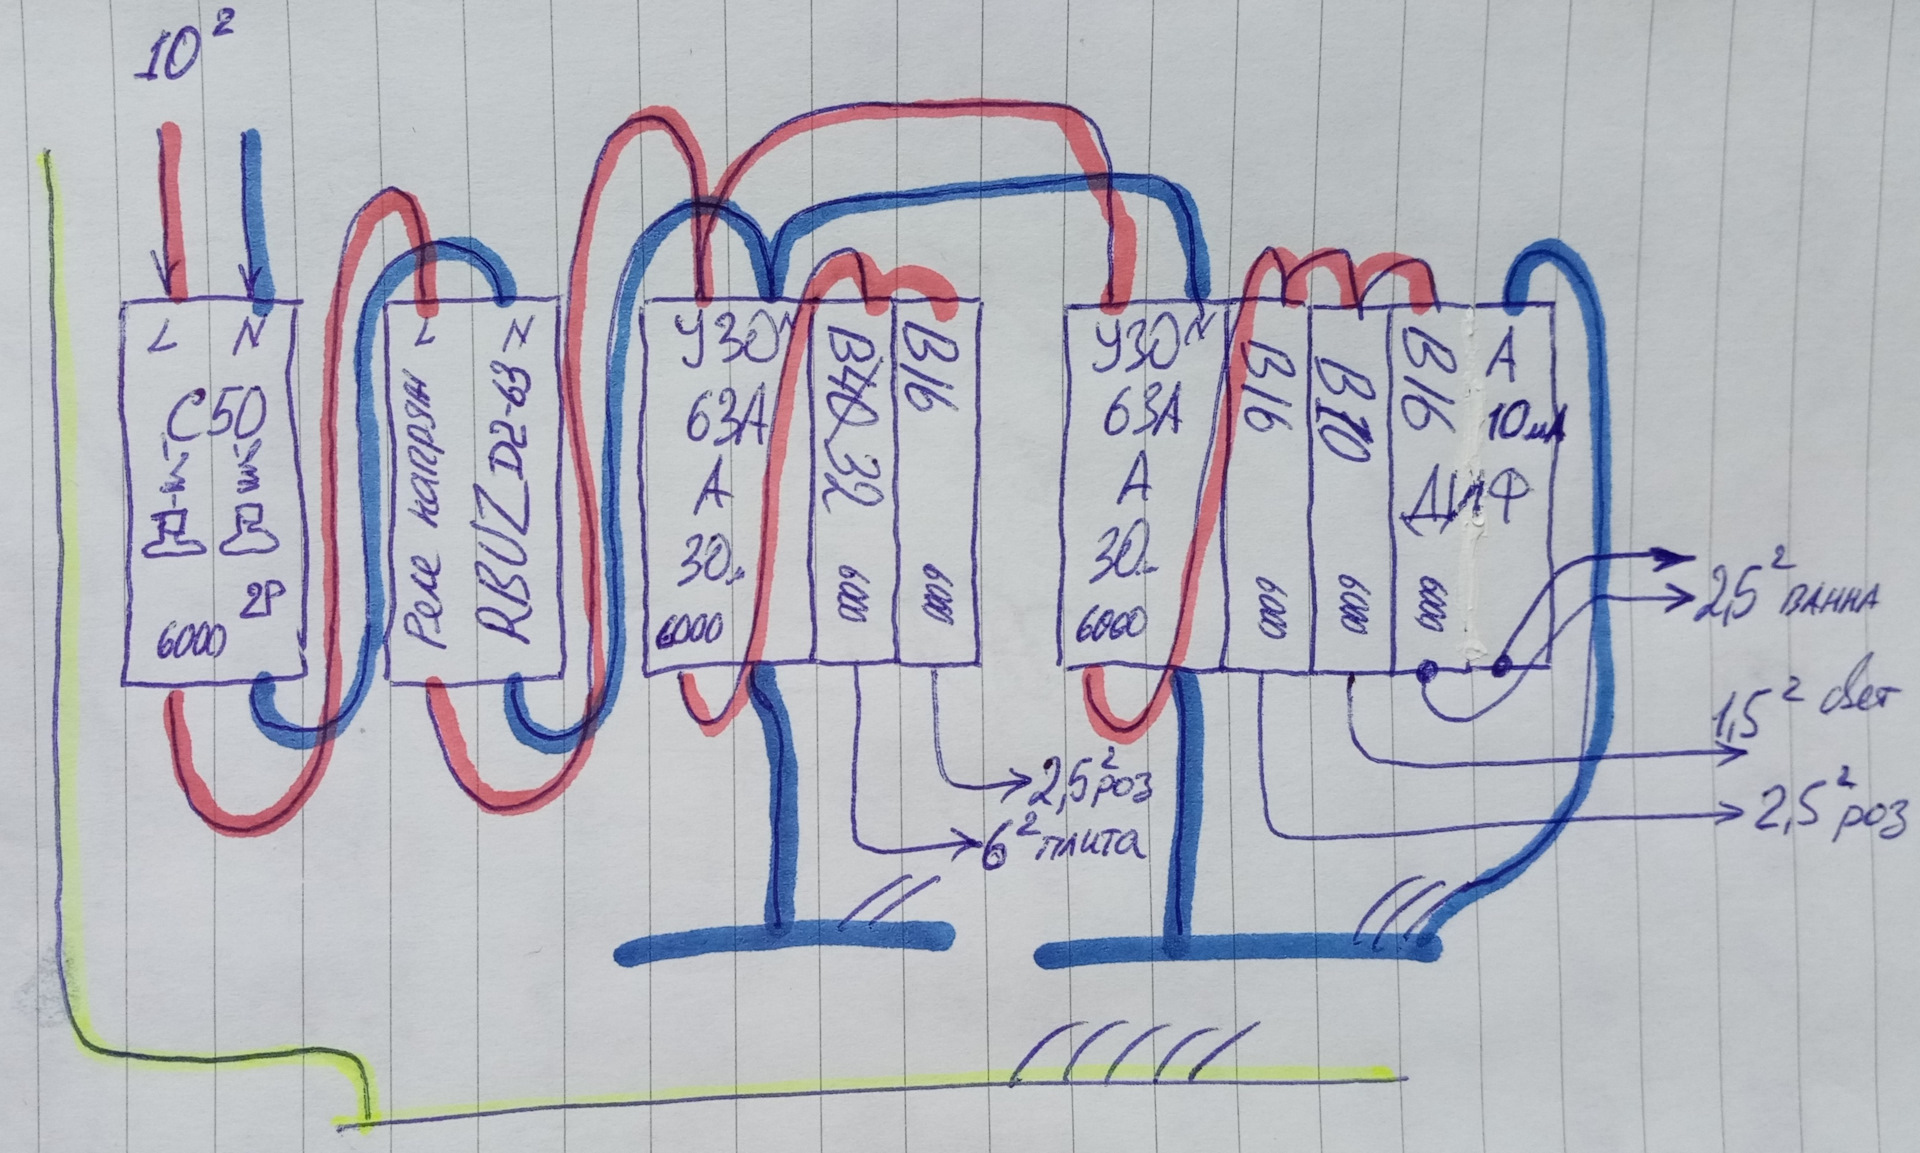 10²
L N
C50
2P
6000
L N
Реле напряж
RBUZ D2-63
УЗО N
63А
А
30м
6000
B40 32
6000
B16
6000
УЗО N
63А
А
30м
6000
B16
6000
B10
6000
B16 А
10мА
ДИФ
6000
2,5² ванна
1,5² свет
2,5² роз
2,5² роз
6² плита